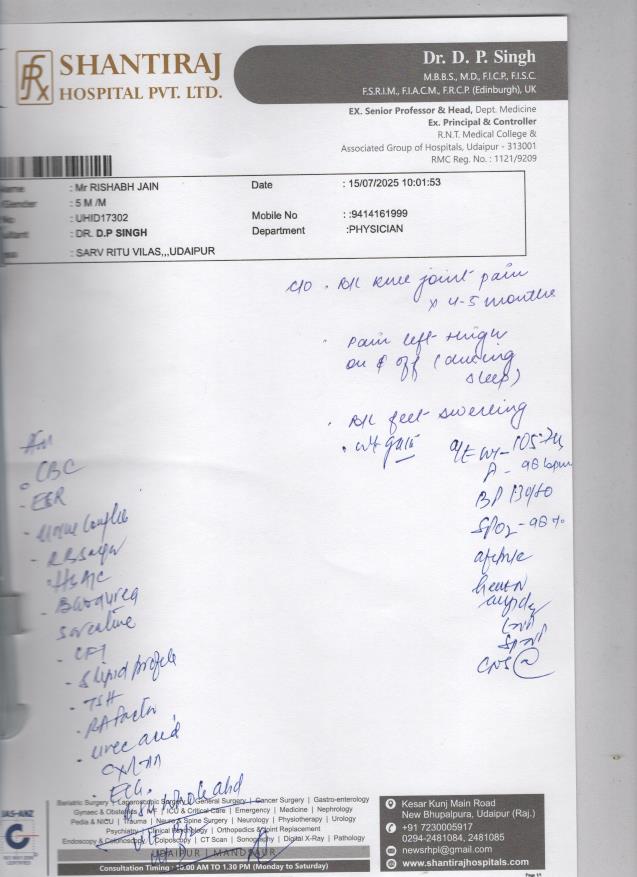 SHANTIRAJ
HOSPITAL PVT. LTD.
Dr. D. P. Singh
M.B.B.S., M.D., F.I.C.P., F.I.S.C.
F.S.R.I.M., F.I.A.C.M., F.R.C.P. (Edinburgh), UK
EX. Senior Professor & Head, Dept. Medicine
Ex. Principal & Controller
R.N.T. Medical College &
Associated Group of Hospitals, Udaipur - 313001
RMC Reg. No. : 1121/9209
: Mr RISHABH JAIN
Date : 15/07/2025 10:01:53
: 5 M /M
: UHID17302
Mobile No : :9414161999
: DR. D.P SINGH
Department :PHYSICIAN
: SARV RITU VILAS,,,UDAIPUR
c/o . B/L knee joint pain
x 4-5 months
. Pain left thigh
on & off (during
sleep)
. B/L feet swelling
. wt gain
O/E wt - 105.7
P - 98 bpm
BP 130/80
SPO2 - 98 %
afebrile
CNS
. CBC
- ESR
- RBsugar
. HbA1c
- Blood urea
- S lipid profile
- TSH
- RA factor
- uric acid
- ECG.
Bariatric Surgery | Laparoscopic Surgery | General Surgery | Cancer Surgery | Gastro-enterology
Gynaec & Obstetrics | IVF | ICU & Critical Care | Emergency | Medicine | Nephrology
Pedia & NICU | Trauma | Neuro & Spine Surgery | Neurology | Physiotherapy | Urology
Psychiatry | Clinical Psychology | Orthopedics & Joint Replacement
Endoscopy & Colonoscopy | Colposcopy | CT Scan | Sonography | Digital X-Ray | Pathology
UDAIPUR | MANDSAUR
Consultation Timing : 10.00 AM TO 1.30 PM (Monday to Saturday)
Kesar Kunj Main Road
New Bhupalpura, Udaipur (Raj.)
+91 7230005917
0294-2481084, 2481085
newsrhpl@gmail.com
www.shantirajhospitals.com
Page 1/1